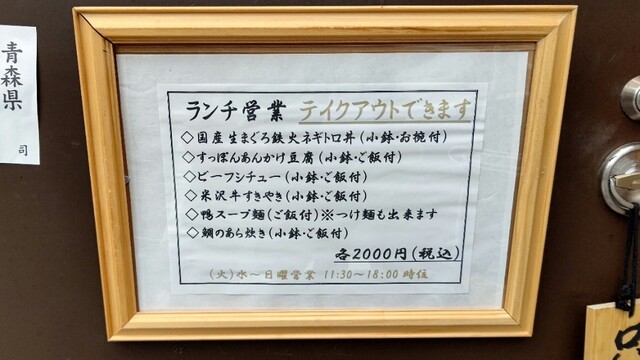 青森県
司
ランチ営業 テイクアウトできます
◇国産生まぐろ鉄火ネギトロ丼(小鉢・お椀付)
◇すっぽんあんかけ豆腐(小鉢・ご飯付)
◇ビーフシチュー(小鉢・ご飯付)
◇米沢牛すきやき(小鉢・ご飯付)
◇鴨スープ麺(ご飯付)※つけ麺も出来ます
◇鯛のあら炊き(小鉢・ご飯付)
各2000円(税込)
(火)水〜日曜営業 11:30〜18:00時位